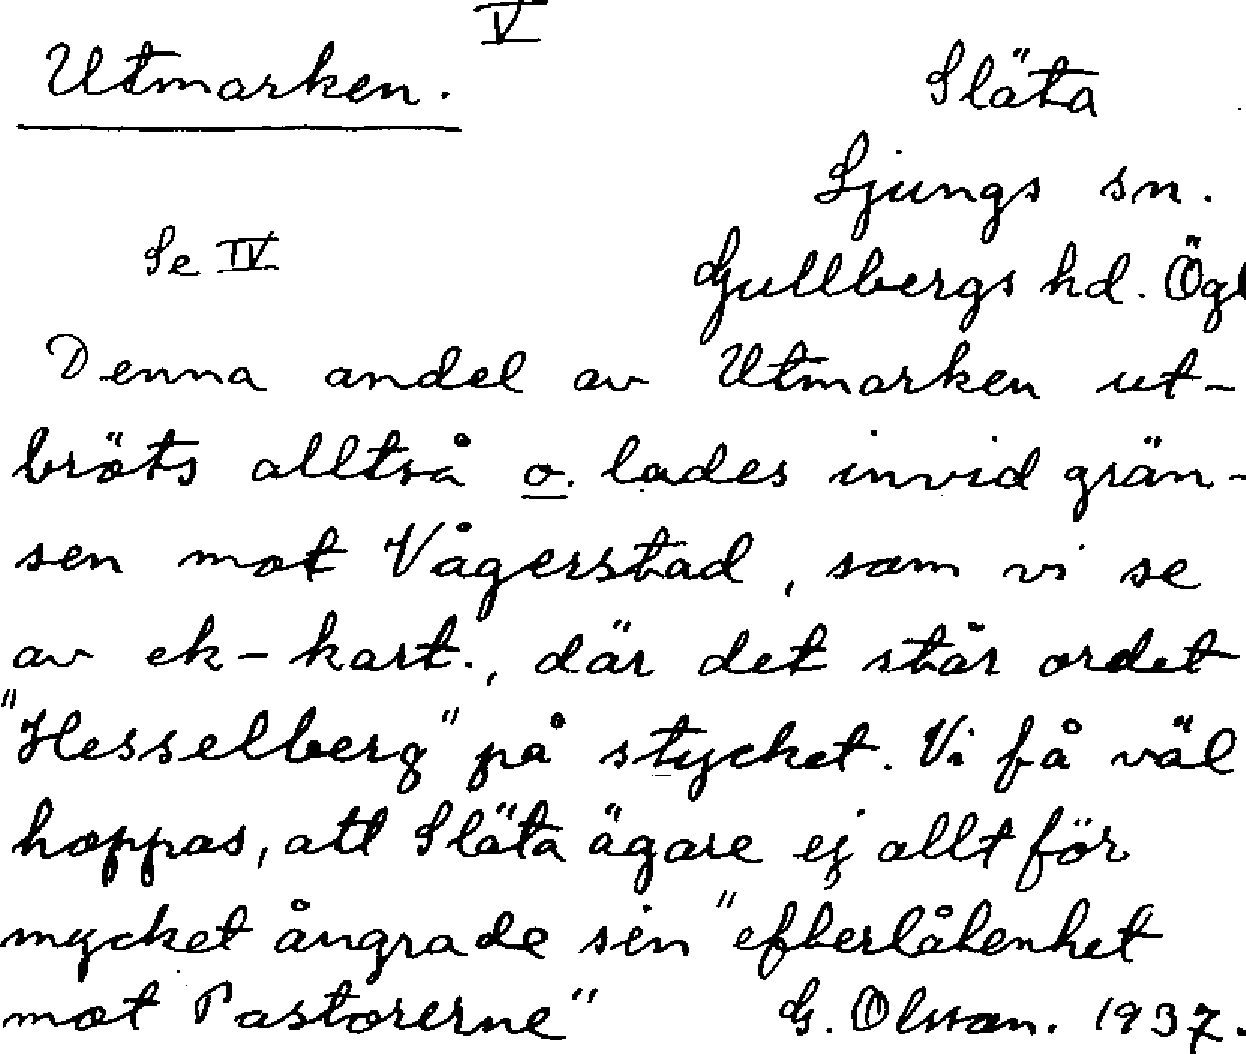 V
Utmarken.
Släta
Ljungs sn.
Se IV
Gullbergs hd. Ögl
Denna andel av Utmarken ut-
bröts alltså o. lades invid grän-
sen mot Vågerstad, som vi se
av ek-kart., där det står ordet
"Hesselberg" på stycket. Vi få väl
hoppas, att Släta ägare ej allt för
mycket ångrade sin "efterlåtenhet
mot Pastorerne" G. Olsson. 1937.